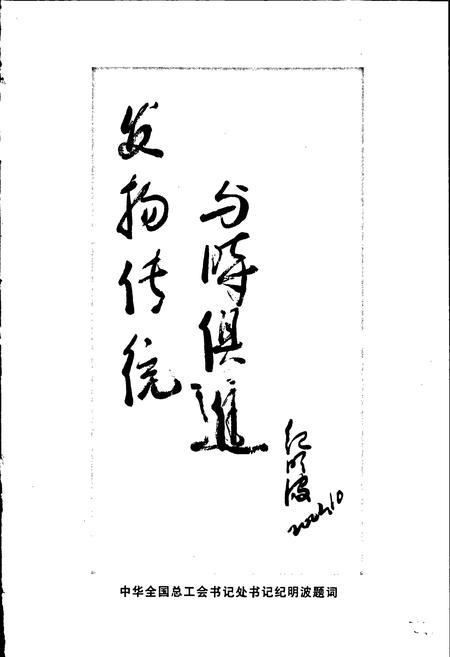 发扬传统
与时俱進
纪明波
中华全国总工会书记处书记纪明波题词